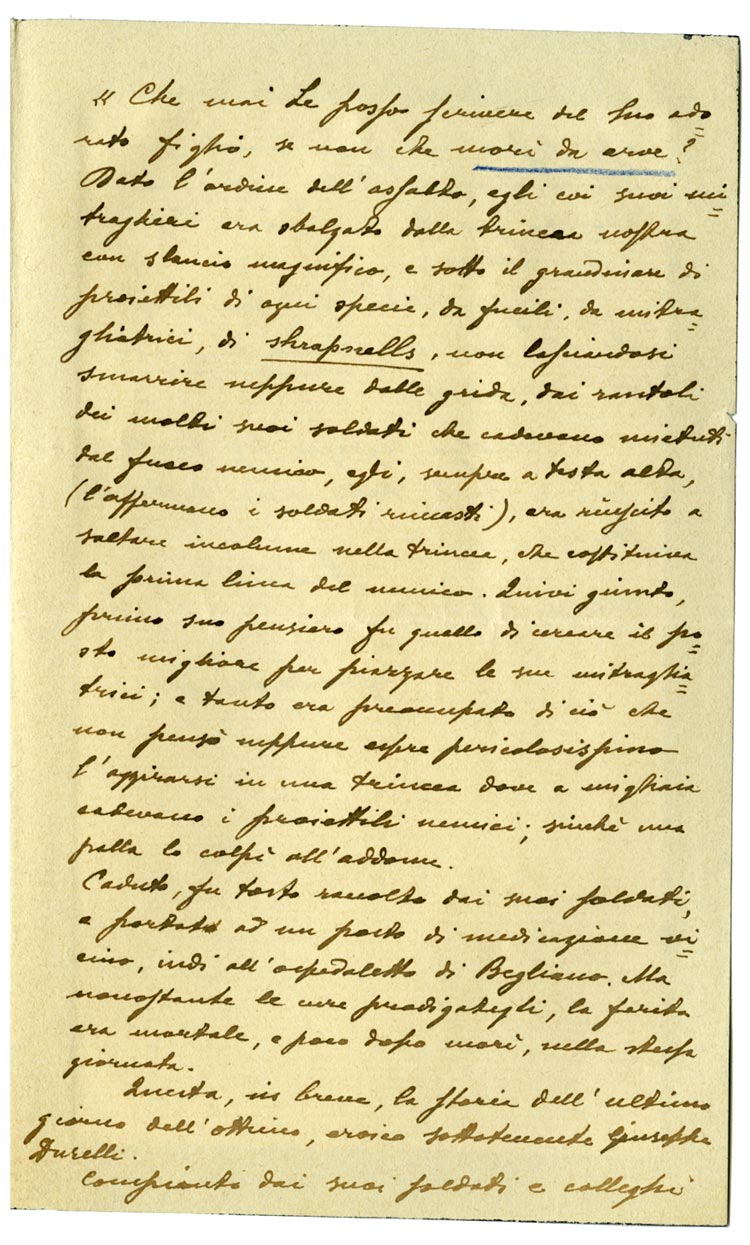 « Che mai Le posso scrivere del Suo ado=
rato figlio, se non che morì da eroe?
Dato l'ordine dell'assalto, egli coi suoi mi=
traglieri era sbalzato dalla trincea nostra
con slancio magnifico, e sotto il grandinare di
proiettili di ogni specie, da fucili, da mitra=
gliatrici, di shrapnells, non lasciandosi
smarrire neppure dalle grida, dai rantoli
dei molti suoi soldati che cadevano mietuti
dal fuoco nemico, egli, sempre a testa alta,
(l'affermano i soldati rimasti), era riuscito a
saltare incolume nella trincea, che costituiva
la prima linea del nemico. Quivi giunto,
primo suo pensiero fu quello di cercare il po=
sto migliore per piazzare le sue mitraglia=
trici; e tanto era preoccupato di ciò che
non pensò neppure essere pericolosissimo
l'aggirarsi in una trincea dove a migliaia
cadevano i proiettili nemici; sinchè una
palla lo colpì all'addome.
Caduto, fu tosto raccolto dai suoi soldati,
e portato ad un posto di medicazione vi=
cino, indi all'ospedaletto di Begliano. Ma
nonostante le cure prodigategli, la ferita
era mortale, e poco dopo morì, nella stessa
giornata.
Questa, in breve, la storia dell'ultimo
giorno dell'ottimo, eroico sottotenente Giuseppe
Durelli.
Compianto dai suoi soldati e colleghi